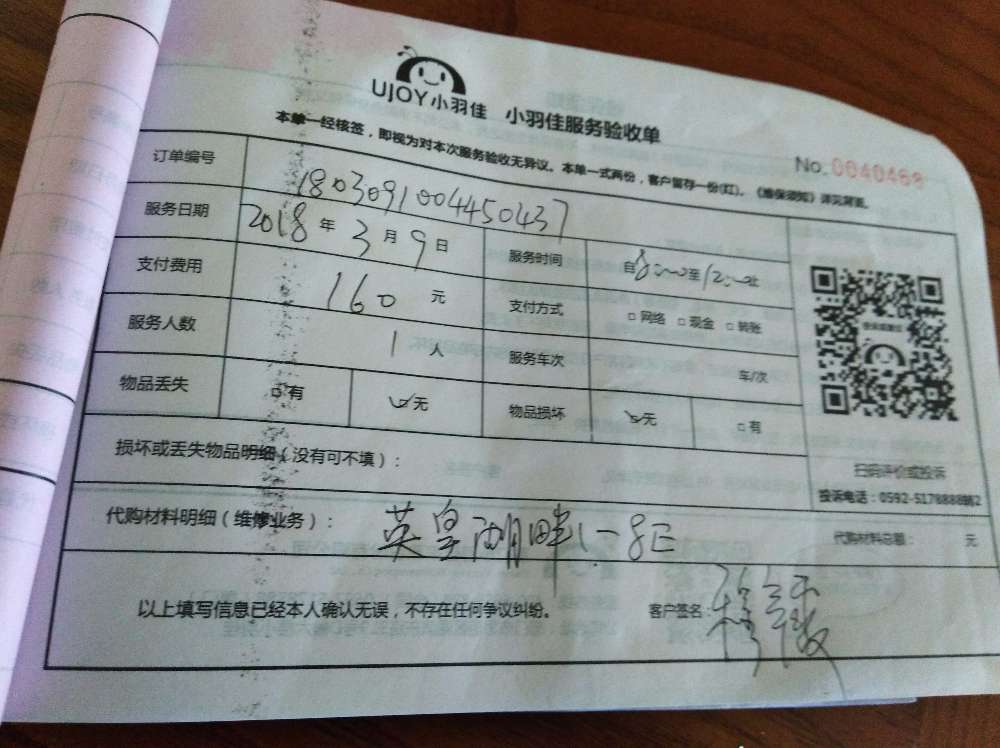 UJOY小羽佳 小羽佳服务验收单
No.0040468
本单一经核签，即视为对本次服务验收无异议。本单一式两份，客户留存一份(红)。《维保须知》详见背面。
订单编号 1803091004450437
服务日期 2018 年 3 月 9 日 服务时间 自8:00至12:00止
支付费用 160 元 支付方式 □ 网络 □ 现金 □ 转账
服务人数 1 人 服务车次 车/次
物品丢失 □ 有 ☑无 物品损坏 ☑无 □ 有
损坏或丢失物品明细（没有可不填）：
扫码评价或投诉
投诉电话：0592-5178888转2
代购材料明细（维修业务）： 英皇湖畔1-8E 代购材料总额： 元
以上填写信息已经本人确认无误，不存在任何争议纠纷。 客户签名：